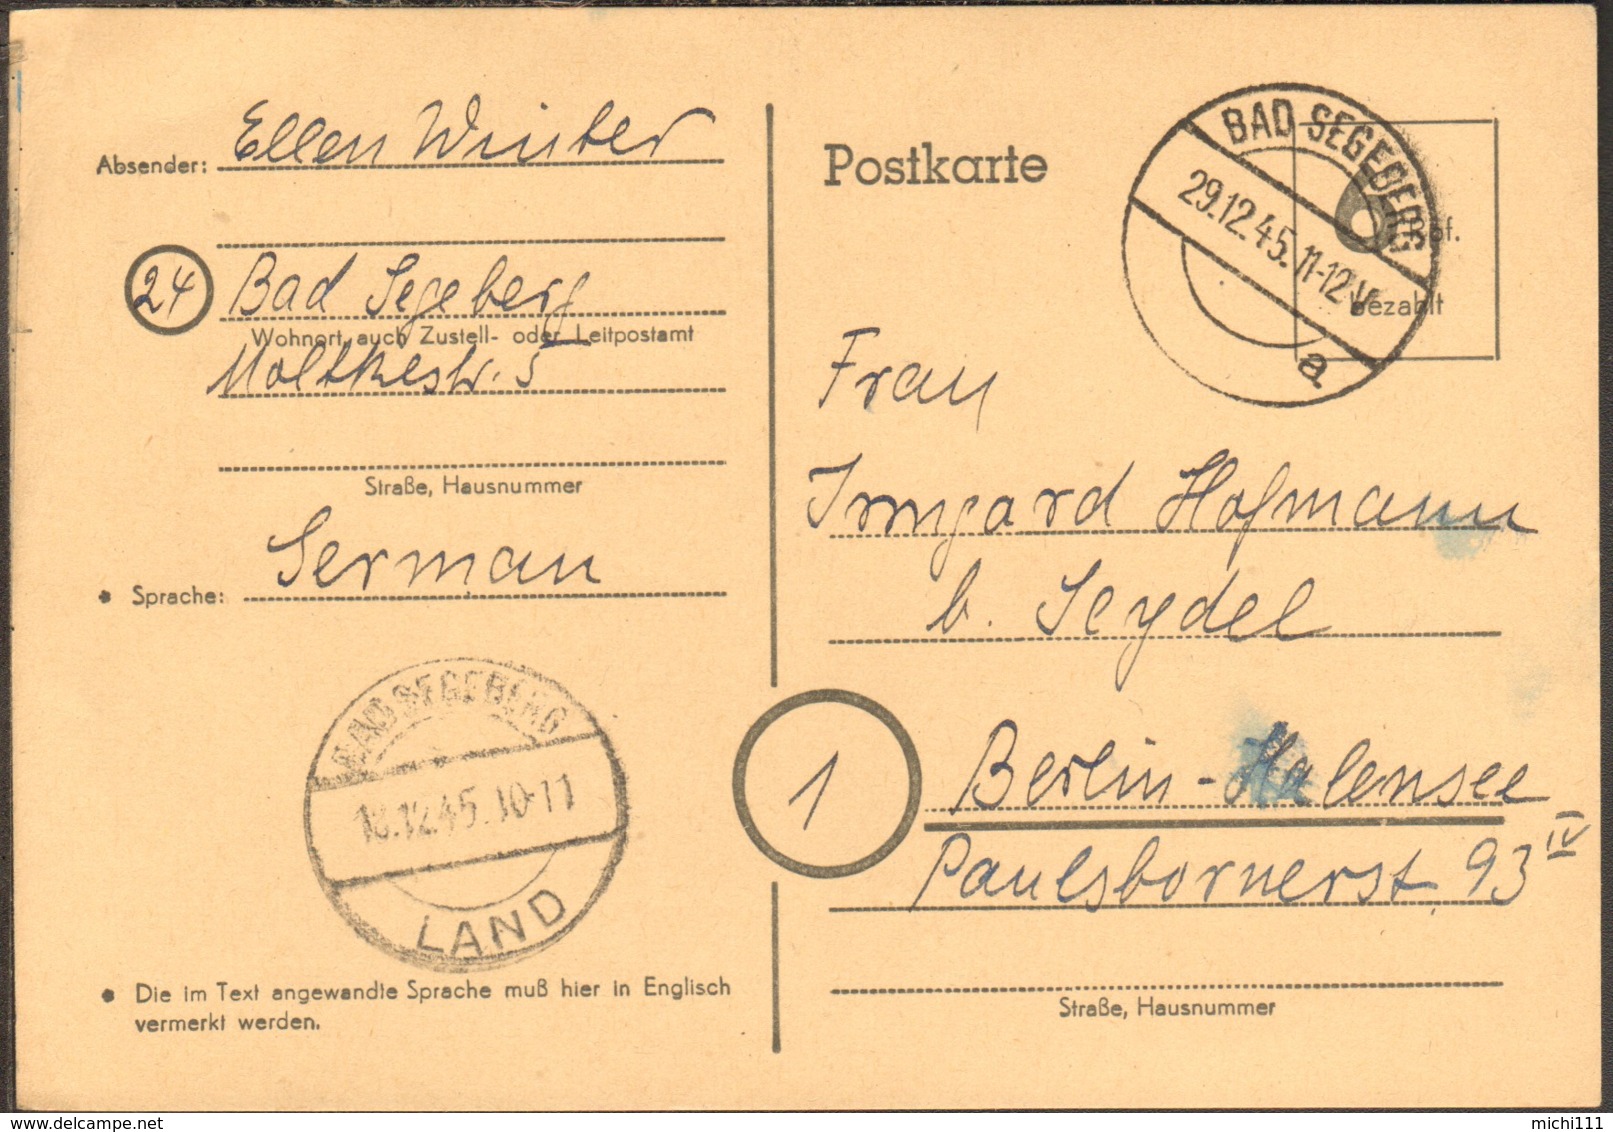 Absender: Ellen Winter
24 Bad Segeberg
Wohnort, auch Zustell- oder Leitpostamt
Moltkestr. 5
Straße, Hausnummer
• Sprache: German
BAD SEGEBERG
18.12.45.10-11
LAND
• Die im Text angewandte Sprache muß hier in Englisch
vermerkt werden.
Postkarte
BAD SEGEBERG
29.12.45. 11-12 V
a
pf.
bezahlt
Frau
Irmgard Hofmann
b. Seydel
1
Berlin-Halensee
Paulsbornerst. 93 IV
Straße, Hausnummer
delcampe.net
michi111